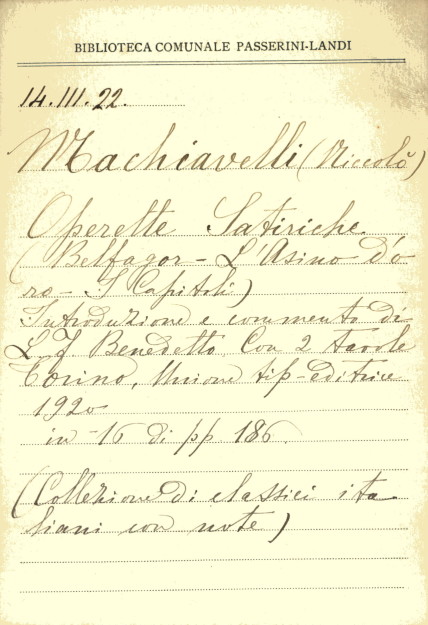 BIBLIOTECA COMUNALE PASSERINI-LANDI
14.III.22.
Machiavelli (Niccolò)
Operette Satiriche
(Belfagor - L'Asino d'o
ro - I Capitoli)
Introduzione e commento di
L. F. Benedetto Con 2 tavole
Torino, Unione tip-editrice
1920
in-16 di pp 186.
(Collezione di classici ita
liani con note)